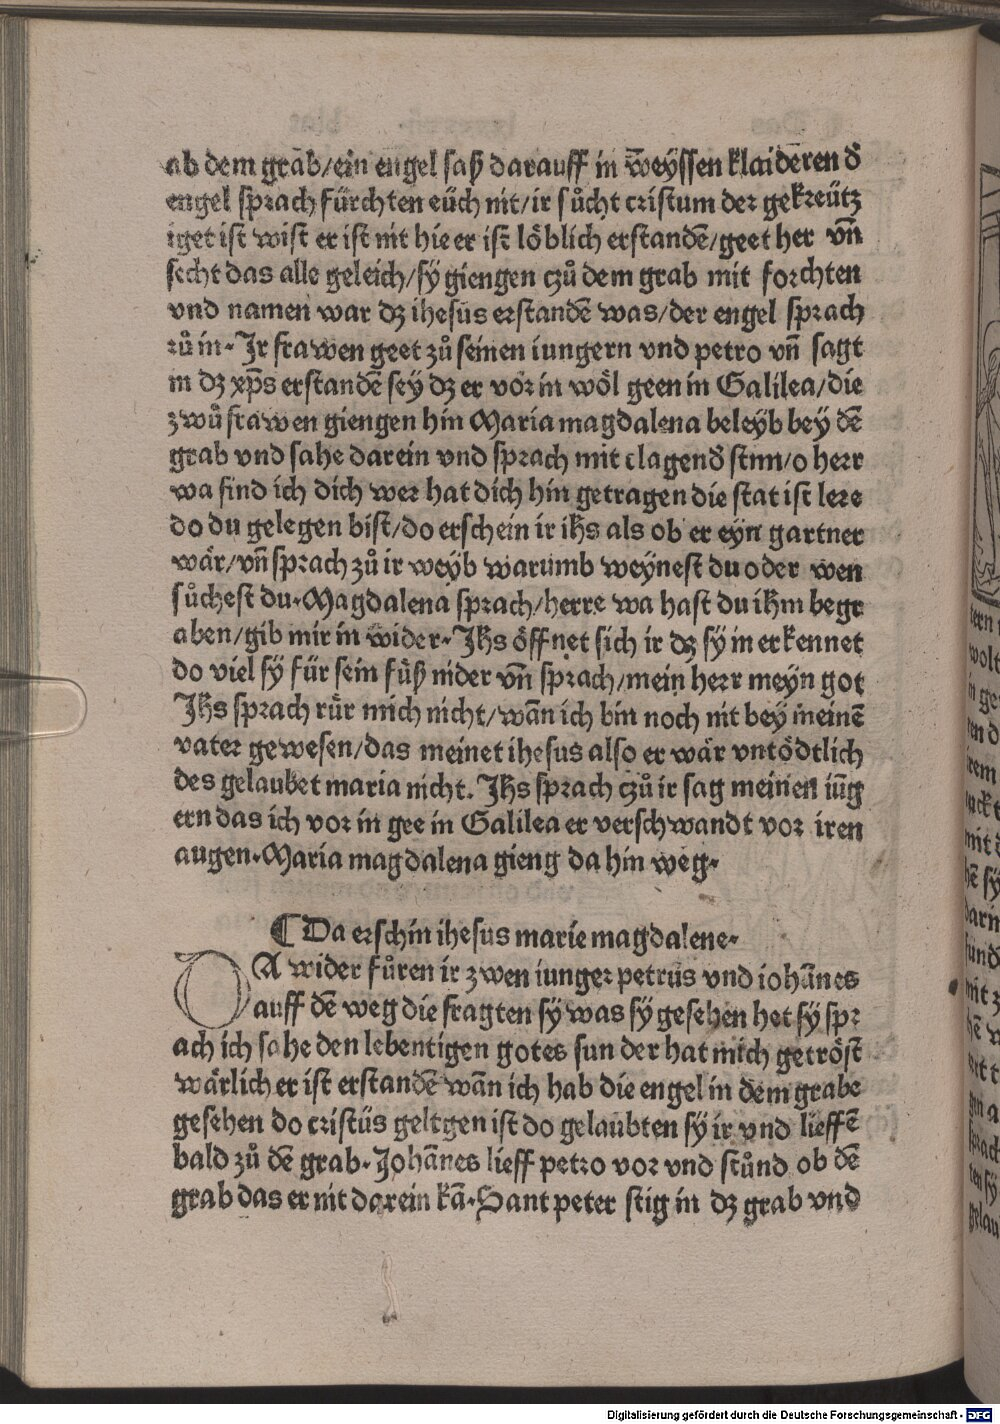 ab dem grab/ein engel saß darauff in weyssen klaideren d̕
engel sprach fürchten eüch nit/ir sůcht cristum der gekreütz
iget ist wist er ist nit hie er ist löblich erstandē/geet her vn̄
secht das alle geleich/sÿ giengen czů dem grab mit forchten
vnd namen war dz ihesus erstandē was/der engel sprach
zů in. Ir frawen geet zů seinen iungern vnd petro vn̄ sagt
in dz xp̄s erstandē seÿ dz er vor in wöl geen in Galilea/die
zwů frawen giengen hin Maria magdalena beleÿb beÿ dē
grab vnd sahe darein vnd sprach mit clagend̕ stim/o herr
wa find ich dich wer hat dich hin getragen die stat ist lere
do du gelegen bist/do erschein ir ihs als ob er eyn gartner
wär/vn̄ sprach zů ir weÿb warumb weÿnest du oder wen
sůchest du. Magdalena sprach/herre wa hast du ihm begr
aben/gib mir in wider. Ihs öffnet sich ir dz sÿ in erkennet
do viel sÿ für sein fůß nider vn̄ sprach/mein herr meÿn got
Ihs sprach rür mich nicht/wān ich bin noch nit beÿ meinē
vater gewesen/das meinet ihesus also er wär vntödtlich
des gelaubet maria nicht. Ihs sprach czů ir sag meinen iūg
ern das ich vor in gee in Galilea er verschwandt vor iren
augen. Maria magdalena gieng da hin weg.
¶ Da erschin ihesus marie magdalene.
DA wider fůren ir zwen iunger petrus vnd iohānes
auff dē weg die fragten sÿ was sÿ gesehen het sÿ spr
ach ich sahe den lebentigen gotes sun der hat mich getröst
wärlich er ist erstandē wān ich hab die engel in dem grabe
gesehen do cristus gelegen ist do gelaubten sÿ ir vnd lieffē
bald zů dē grab. Johānes lieff petro vor vnd stůnd ob dē
grab das er nit darein kā. Sant peter stig in dz grab vnd
Digitalisierung gefördert durch die Deutsche Forschungsgemeinschaft - DFG